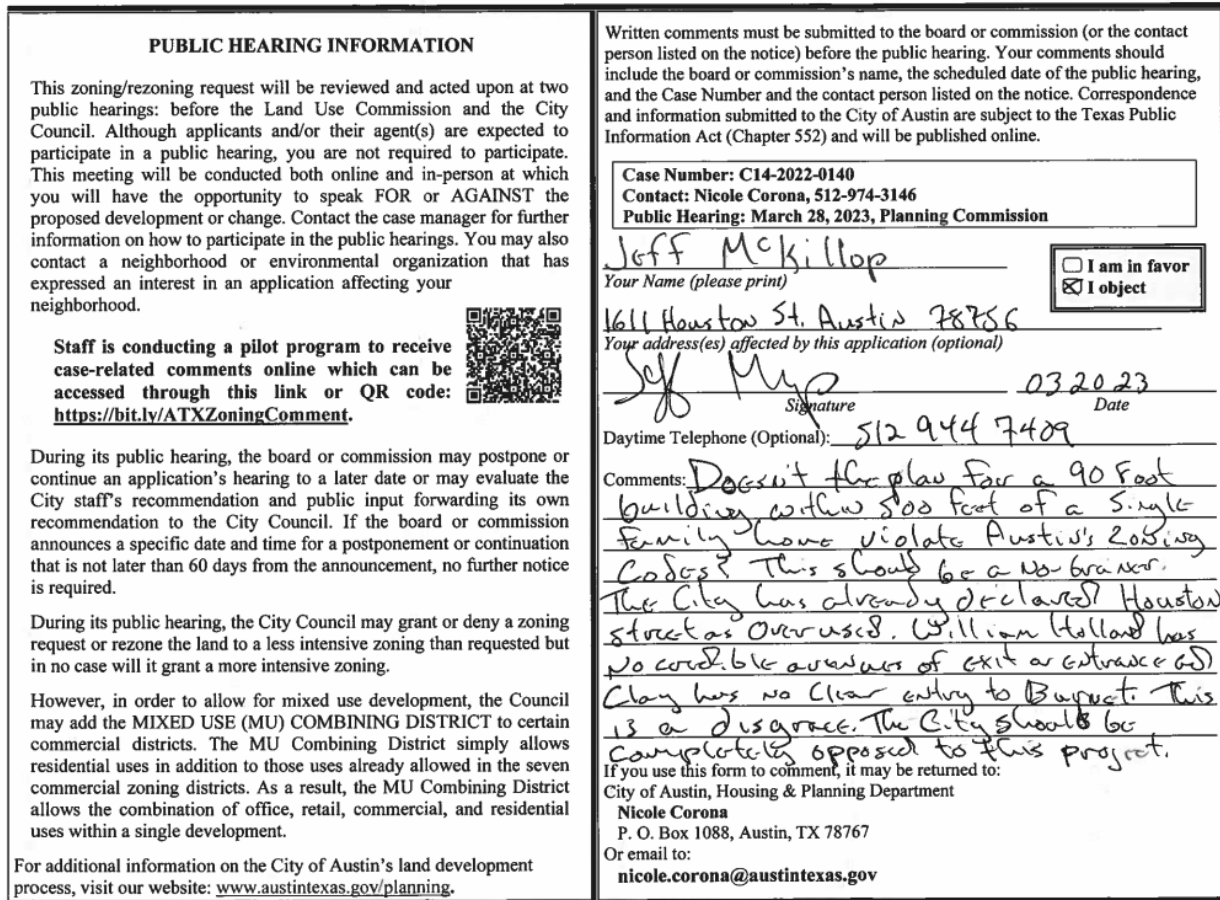 PUBLIC HEARING INFORMATION
This zoning/rezoning request will be reviewed and acted upon at two
public hearings: before the Land Use Commission and the City
Council. Although applicants and/or their agent(s) are expected to
participate in a public hearing, you are not required to participate.
This meeting will be conducted both online and in-person at which
you will have the opportunity to speak FOR or AGAINST the
proposed development or change. Contact the case manager for further
information on how to participate in the public hearings. You may also
contact a neighborhood or environmental organization that has
expressed an interest in an application affecting your
neighborhood.
Staff is conducting a pilot program to receive
case-related comments online which can be
accessed through this link or QR code:
https://bit.ly/ATXZoningComment.
During its public hearing, the board or commission may postpone or
continue an application's hearing to a later date or may evaluate the
City staff's recommendation and public input forwarding its own
recommendation to the City Council. If the board or commission
announces a specific date and time for a postponement or continuation
that is not later than 60 days from the announcement, no further notice
is required.
During its public hearing, the City Council may grant or deny a zoning
request or rezone the land to a less intensive zoning than requested but
in no case will it grant a more intensive zoning.
However, in order to allow for mixed use development, the Council
may add the MIXED USE (MU) COMBINING DISTRICT to certain
commercial districts. The MU Combining District simply allows
residential uses in addition to those uses already allowed in the seven
commercial zoning districts. As a result, the MU Combining District
allows the combination of office, retail, commercial, and residential
uses within a single development.
For additional information on the City of Austin's land development
process, visit our website: www.austintexas.gov/planning.
Written comments must be submitted to the board or commission (or the contact
person listed on the notice) before the public hearing. Your comments should
include the board or commission's name, the scheduled date of the public hearing,
and the Case Number and the contact person listed on the notice. Correspondence
and information submitted to the City of Austin are subject to the Texas Public
Information Act (Chapter 552) and will be published online.
Case Number: C14-2022-0140
Contact: Nicole Corona, 512-974-3146
Public Hearing: March 28, 2023, Planning Commission
Jeff McKillop
Your Name (please print)
I am in favor
I object
1611 Houston St. Austin 78756
Your address(es) affected by this application (optional)
03.20.23
Signature Date
Daytime Telephone (Optional): 512 944 7409
Comments: Doesn't the plan for a 90 Foot
building within 500 feet of a Single
family home violate Austin's Zoning
Codes? This should be a No-brainer.
The City has already declared Houston
street as Overused. William Holland has
No credible avenues of exit or entrance and
Clay has No Clear entry to Burnet. This
is a disgrace. The City should be
completely opposed to this project.
If you use this form to comment, it may be returned to:
City of Austin, Housing & Planning Department
Nicole Corona
P. O. Box 1088, Austin, TX 78767
Or email to:
nicole.corona@austintexas.gov